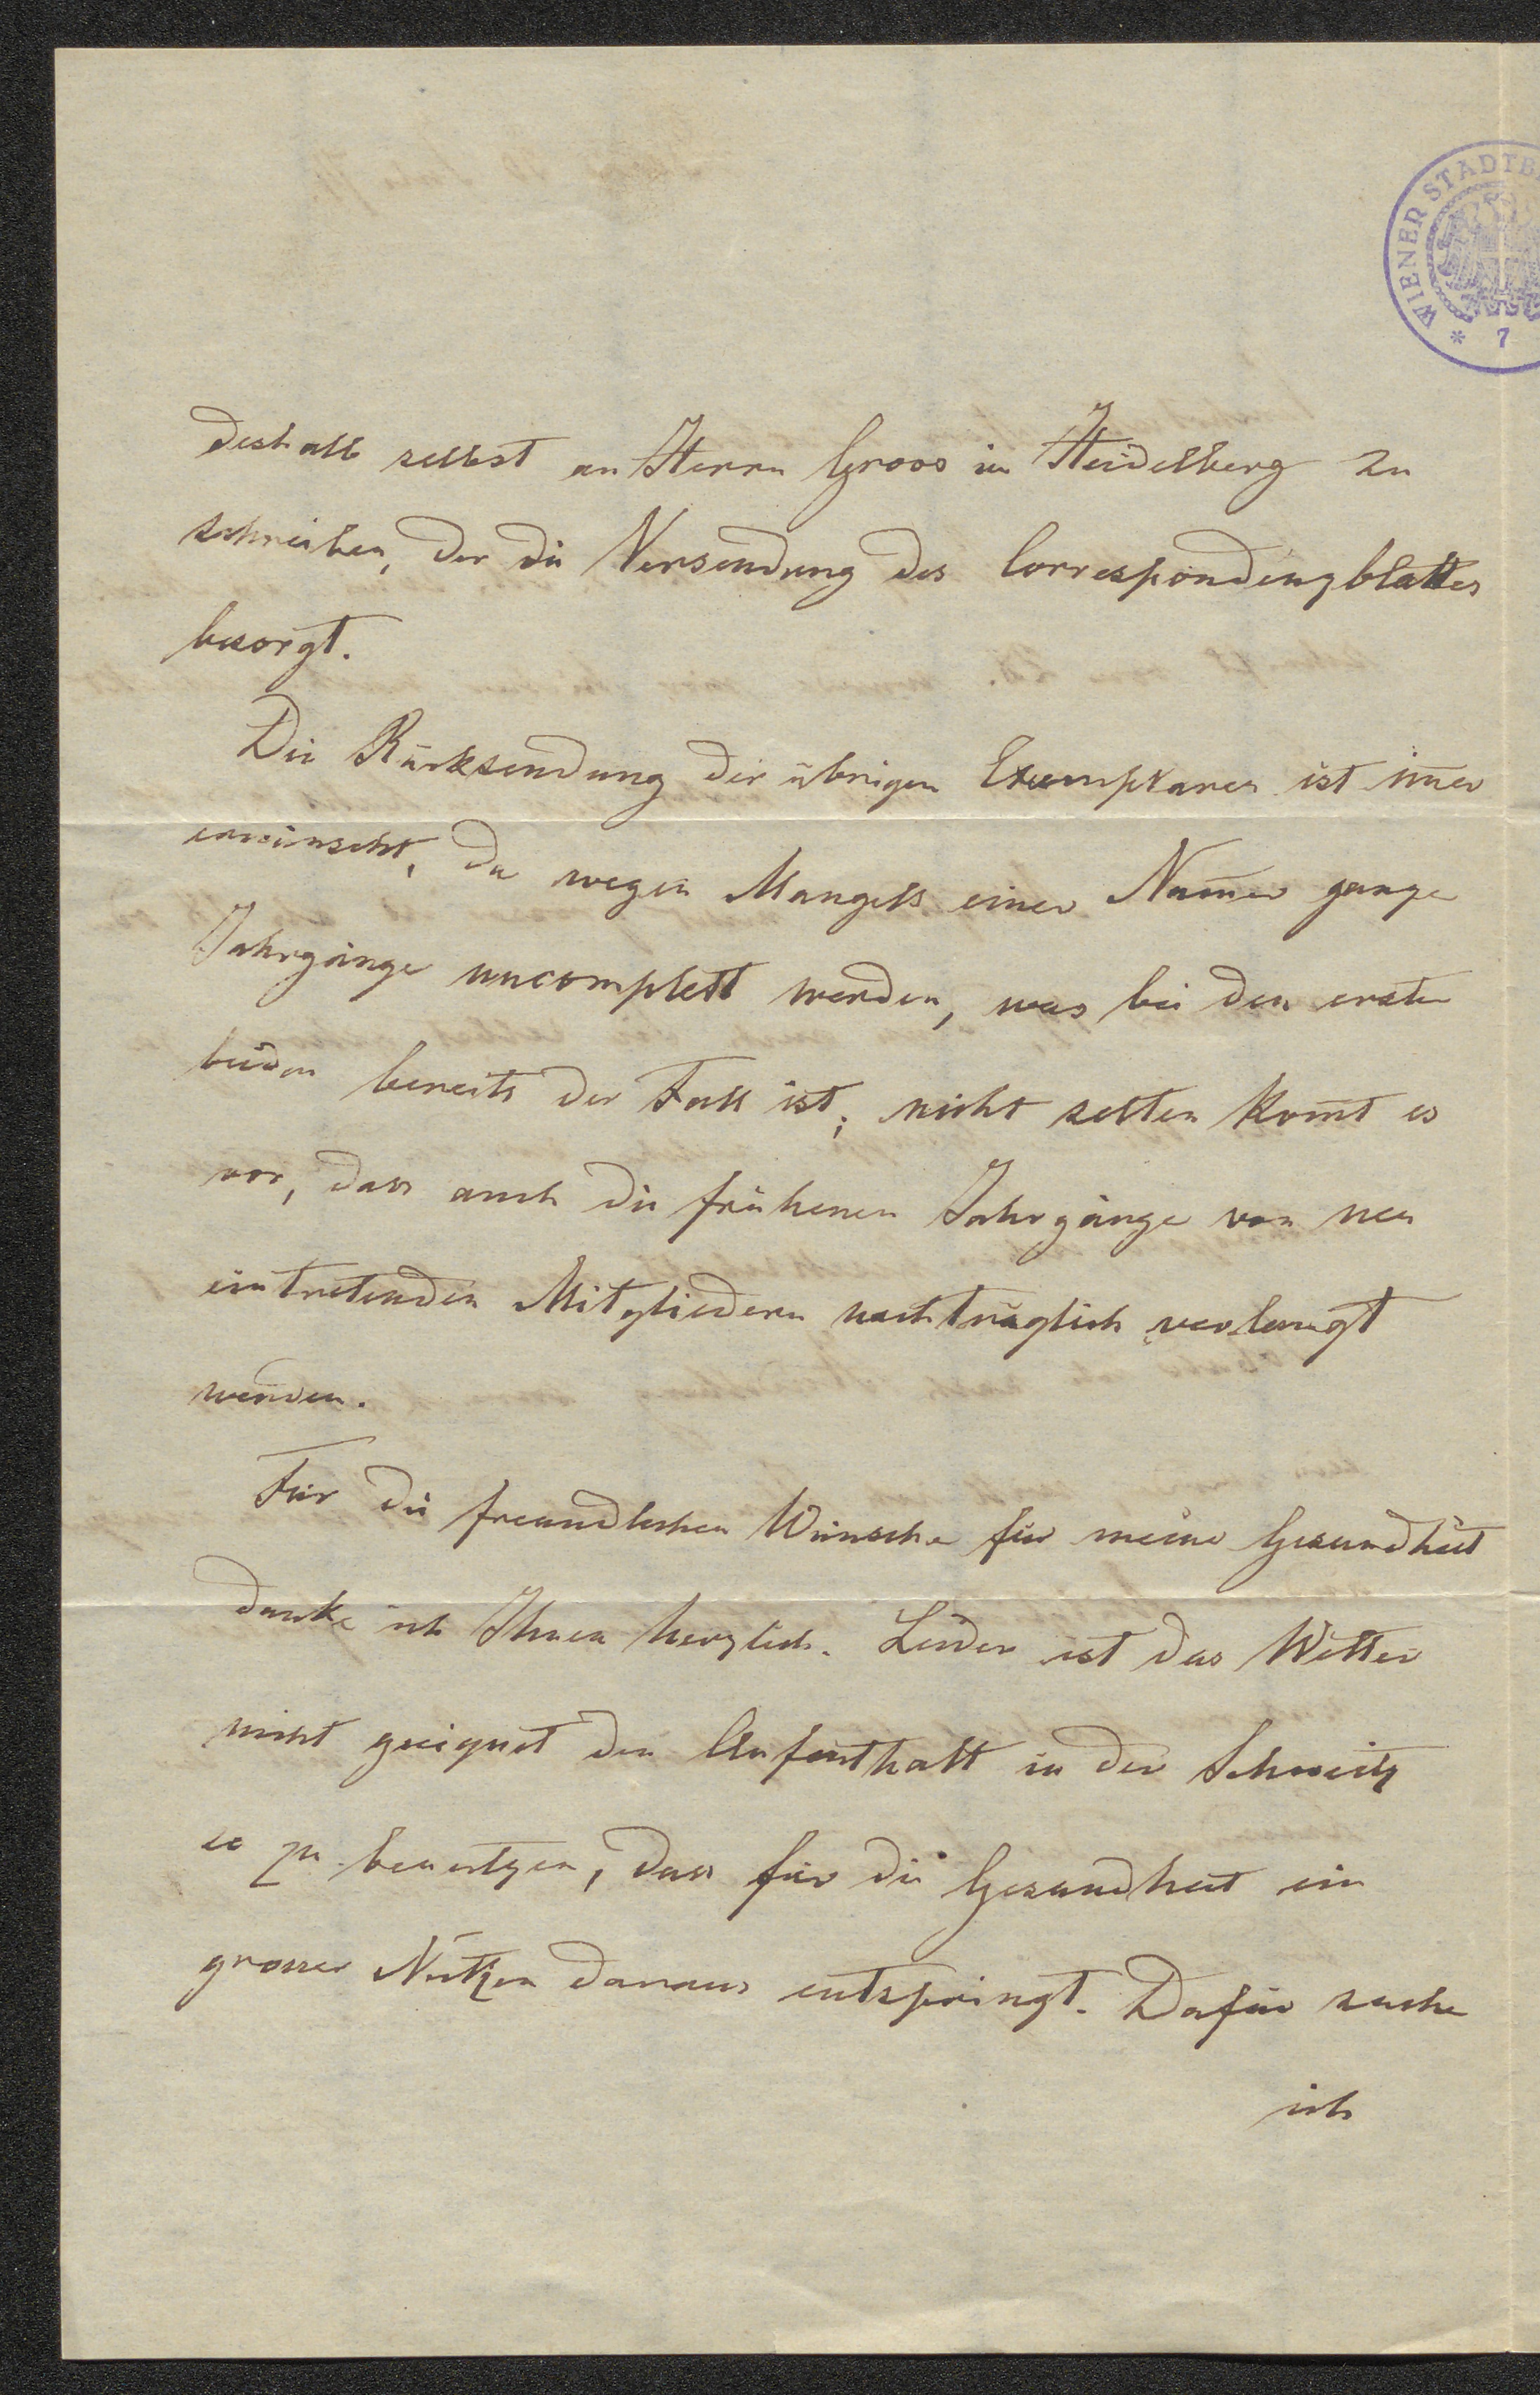 WIENER STADTB
* 7
deshalb selbst an Herrn Groos in Heidelberg zu
schreiben, der die Versendung des Correspondenzblattes
besorgt.
Die Rücksendung der übrigen Exemplaren ist im̅er
erwünscht, da wegen Mangels einer Num̅er ganze
Jahrgänge uncomplett werden, was bei den ersten
beiden bereits der Fall ist; nicht selten kom̅t es
vor, dass auch die früheren Jahrgänge von neu
eintretenden Mitgliedern nachträglich verlangt
werden.
Für die freundlichen Wünsche für meine Gesundheit
danke ich Ihnen herzlich. Leider ist das Wetter
nicht geeignet den Aufenthalt in der Schweitz
so zu benutzen, dass für die Gesundheit ein
grosser Nutzen daraus entspringt. Dafür suche
ich